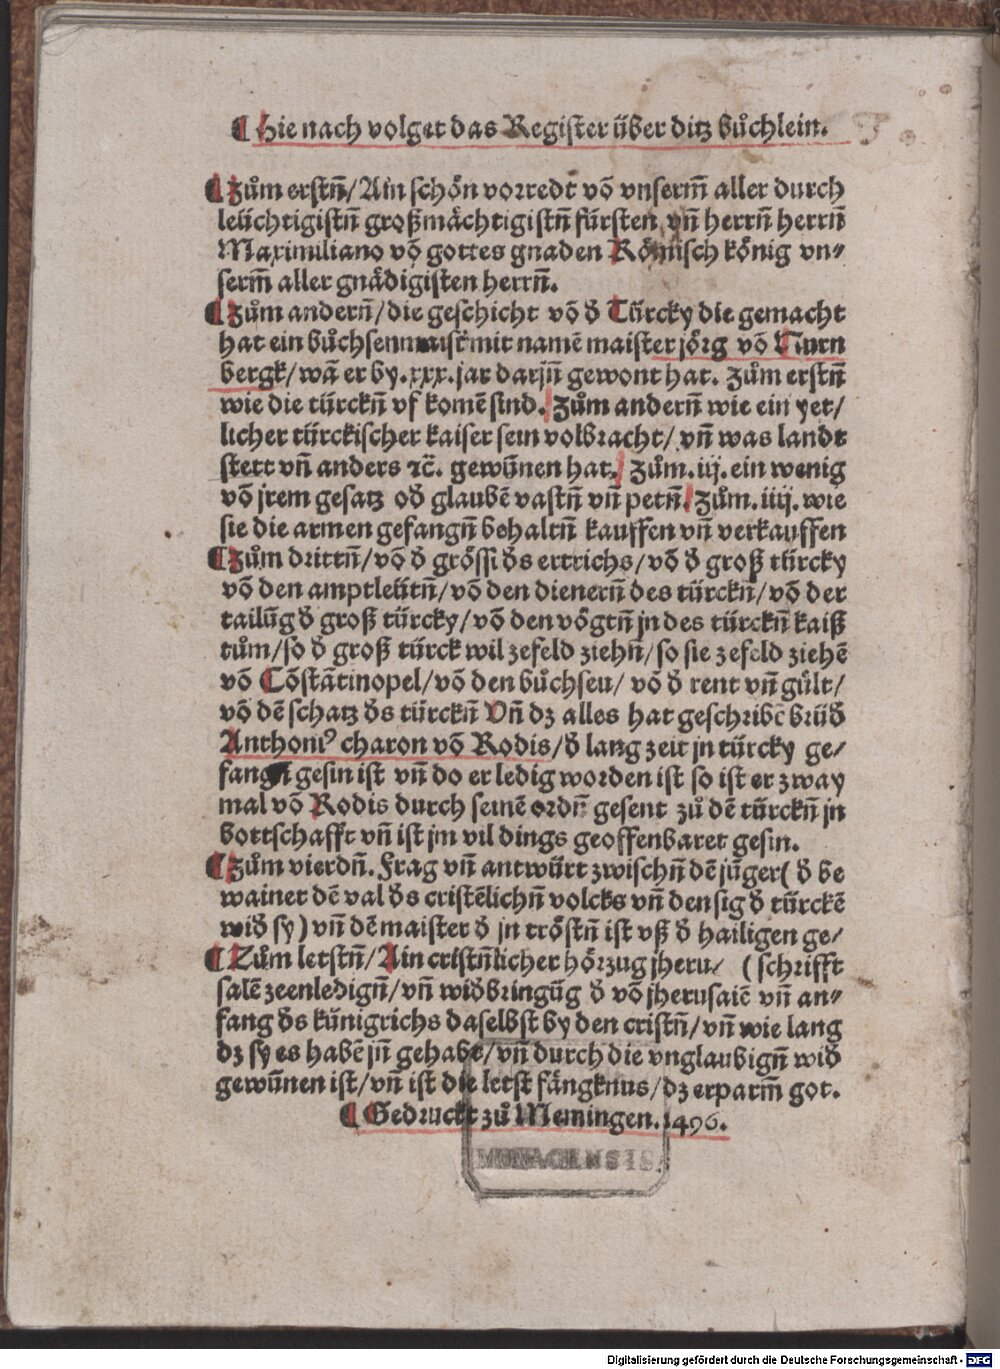 ¶ Hie nach volget das Register über ditz bůchlein.
¶ Zům erstñ/Ain schön vorredt vō vnserm̄ aller durch
leüchtigistñ großmächtigistñ fürsten vñ herrñ herrñ
Maximiliano vō gottes gnaden Römisch könig vn⸗
serm̄ aller gnädigisten herrñ.
¶ Zům anderñ/die geschicht vō đ Türcky die gemacht
hat ein bůchsenmaist̄ mit namē maister jörg vō Nurn
bergk/wā er by.xxx.jar darjñ gewont hat. Zům erstñ
wie die türckñ vf komē sind. Zům anderñ wie ein yet/
licher türckischer kaiser sein volbracht/vñ was landt
stett vñ anders ⁊c̄. gewūnen hat. Zům.iij.ein wenig
vō jrem gesatz ođ glaubē vastñ vñ petñ. Zům.iiij.wie
sie die armen gefangñ behaltñ kauffen vñ verkauffen
¶ Zům drittñ/vō đ grössi đs ertrichs/vō đ groß türcky
vō den amptleütñ/vō den dienerñ des türckñ/vō der
tailūg đ groß türcky/vō den vögtñ jn des türckñ kaiß
tům/so đ groß türck wil zefeld ziehñ/so sie zefeld ziehē
vō Cōstātinopel/vō den bůchseu/ vō đ rent vñ gült/
vō dē schatz đs türckñ Vñ dz alles hat geschribē brüđ
Anthoniꝰ charon vō Rodis/đ lang zeit jn türcky ge/
fangñ gesin ist vñ do er ledig worden ist so ist er zway
mal vō Rodis durch seinē ordñ gesent zů dē türckñ jn
bottschafft vñ ist jm vil dings geoffenbaret gesin.
¶ Zům vierdñ. Frag vñ antwürt zwischñ dē jūger( đ be
wainet dē val đs cristēlichñ volcks vñ den sig đ türckē
wiđ sy) vñ dē maister đ jn tröstñ ist vß đ hailigen ge/
¶ Zům letstñ/Ain cristñlicher hörzug jheru/ (schrifft
salē zeenledigñ/vñ wiđbringūg đ vō jherusalē vñ an⸗
fang đs künigrichs daselbst by den cristñ/vñ wie lang
dz sy es habē jñ gehabt/vñ durch die vnglaubigñ wiđ
gewūnen ist/vñ ist die letst fängknus/dz erparm̄ got.
¶ Gedruckt zů Memingen.1496.
MONACENSIS.
Digitalisierung gefördert durch die Deutsche Forschungsgemeinschaft - DFG